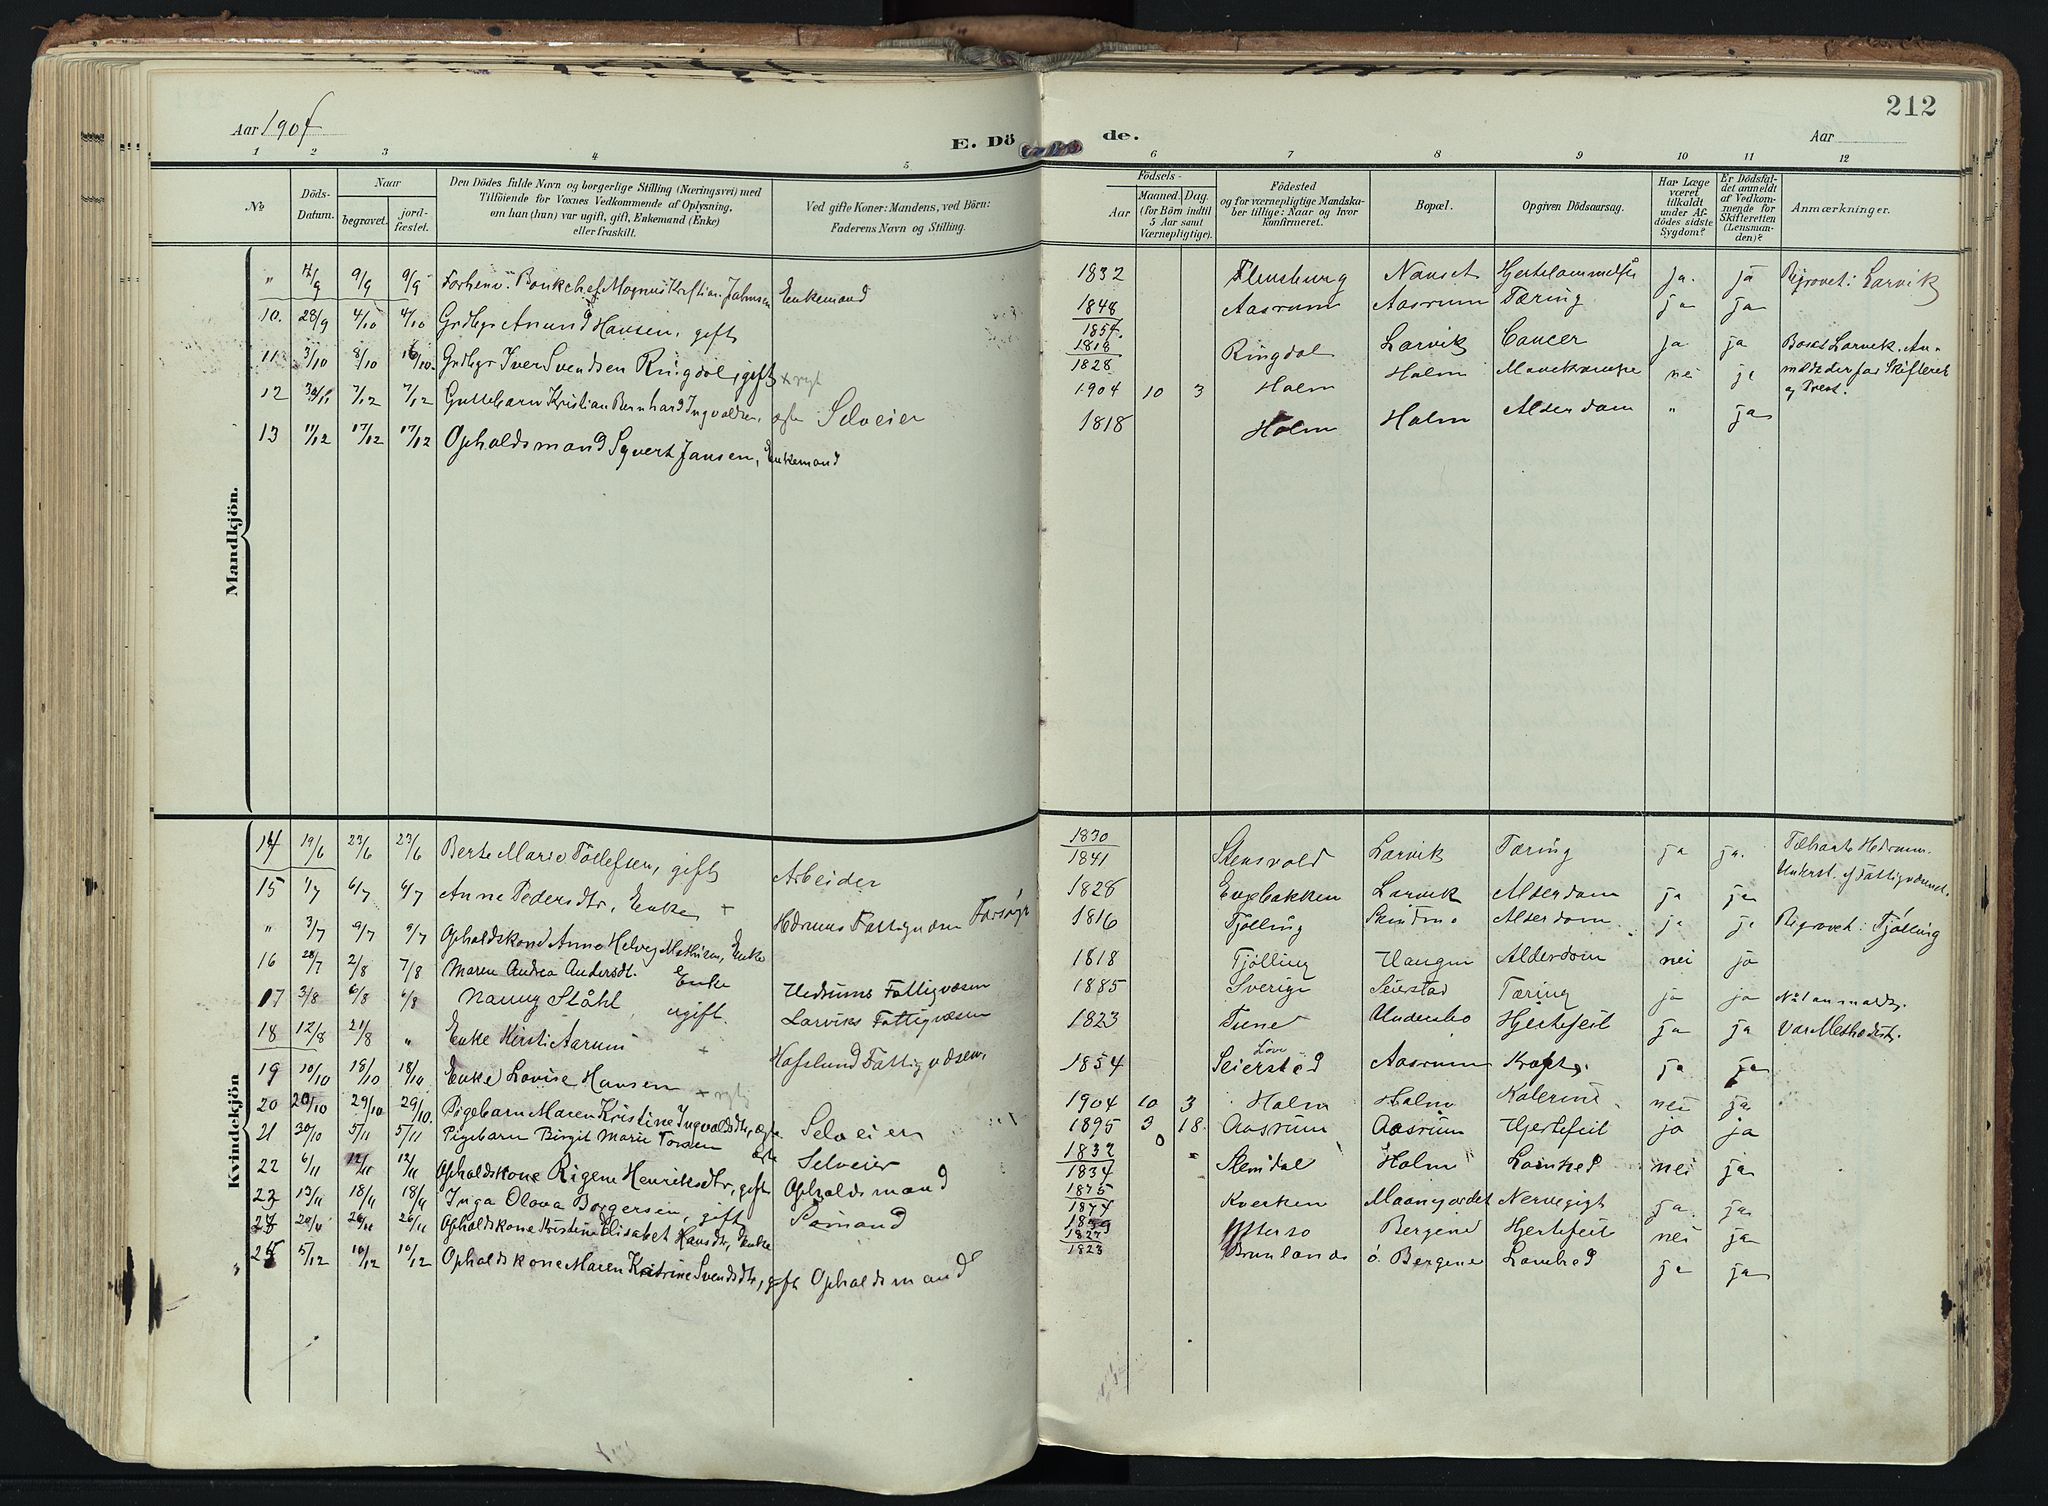 212
Aar 1904
E. Dö de.
Aar
1 2 3 4 5 6 7 8 9 10 11 12
No
Döds-Datum.
Naar
begravet.
jordfæstet.
Den Dödes fulde Navn og borgerlige Stilling (Næringsvei) med Tilföiende for Voxnes Vedkommende af Oplysning, om han (hun) var ugift, gift, Enkemand (Enke) eller fraskilt.
Ved gifte Koner: Mandens, ved Börn: Faderens Navn og Stilling.
Födsels-
Aar
Maaned. Dag. (for Börn indtil 5 Aar samt Værnepligtige).
Födested og for værnepligtige Mandskaber tillige: Naar og hvor konfirmeret.
Bopæl.
Opgiven Dödsaarsag.
Har Læge været tilkaldt under Afdödes sidste Sygdom?
Er Dödsfaldet anmeldt af Vedkommende for Skifteretten (Lensmanden)?
Anmærkninger.
Mandkjön.
" 4/9 9/9 9/9 Forhenv. Bankchef Magnus Kristian Jahnsen Enkemand 1832 Flensburg Nanset ja. ja Begravet i Larvik
10. 28/9 4/10 4/10 Grdbgr Anund Hansen, gift 1848 Aasrum Aasrum Tæring ja ja
1854
11 3/10 8/10 16/10. Grdbgr Iver Svendsen Ringdal, gift 1818 1828 Ringdal Larvik Cancer ja ja
12 30/11 7/12 7/12 Guttebarn Kristian Bernhard Ingvaldsen, ægte Selveier 1904 10 3 Holm Holm Mavekrampe nei ja
13 11/12 17/12 17/12 Opholdsmand Syvert Jansen, Enkemand 1818 Holm Holm Alderdom " ja
Kvindekjön
14 19/6 23/6 23/6 Berte Marie Tollefsen, gift Arbeider 1830 1841 Stensvold Larvik Tæring ja ja.
15 1/7 6/7 6/7 Anne Pedersdtr, Enke + Hedrums Fattigvæsen 1828 Engebakken Larvik Alderdom ja ja Underst. af Fattigvæsenet.
" 3/7 9/7 9/7 Opholdskone Anne Helvig Mathisen, Enke 1816 Tjölling Alderdom. ja ja Begravet i Tjölling
16 28/7 2/8 7/8 Maren Andrea Andersdt. Enke Hedrums Fattigvæsen 1818 Tjölling Haugen Alderdom nei ja
17 3/8 6/8 6/8 Nanny Ståhl, ugift. Larviks Fattigvæsen 1885 Sverige Seierstad Tæring ja ja
18 12/8 21/8 " Enke Kirsti Aarum + Hafslund Fattigvæsen, 1823 Tune Hjertefeil ja ja Var Methodist.
19 10/10 18/10 18/10 Enke Lovise Hansen 1854 Seierstad Aasrum Kræft. ja ja
20 20/10 29/10 29/10. Pigebarn Maren Kristine Ingvaldsdtr, ægte Selveier 1904 10 3 Holm Holm nei ja
21 30/10 5/11 5/11 Pigebarn Birgit Marie Torsen ægte Selveier 1895 3 18. Aasrum Aasrum Hjertefeil ja ja
22 6/11 12/11 12/11 Opholdskone Rigene Henriksdtr, gift Opholdsmand 1832 1834 Stendal Holm nei ja
23 13/11 18/11 18/11 Inga Olava Borgersen, gift Sömand 1875 1877 Kverken Nervegigt ja. ja.
24 20/11 26/11 26/11 Opholdskone Kristine Elisabet Hansdtr, Enke 1827 Ytterso Bergene Hjertefeil nei ja
25 5/12 10/12 10/12 Opholdskone Maren Katrine Svendsdtr, gift Opholdsmand 1823 ö. Bergene ja ja